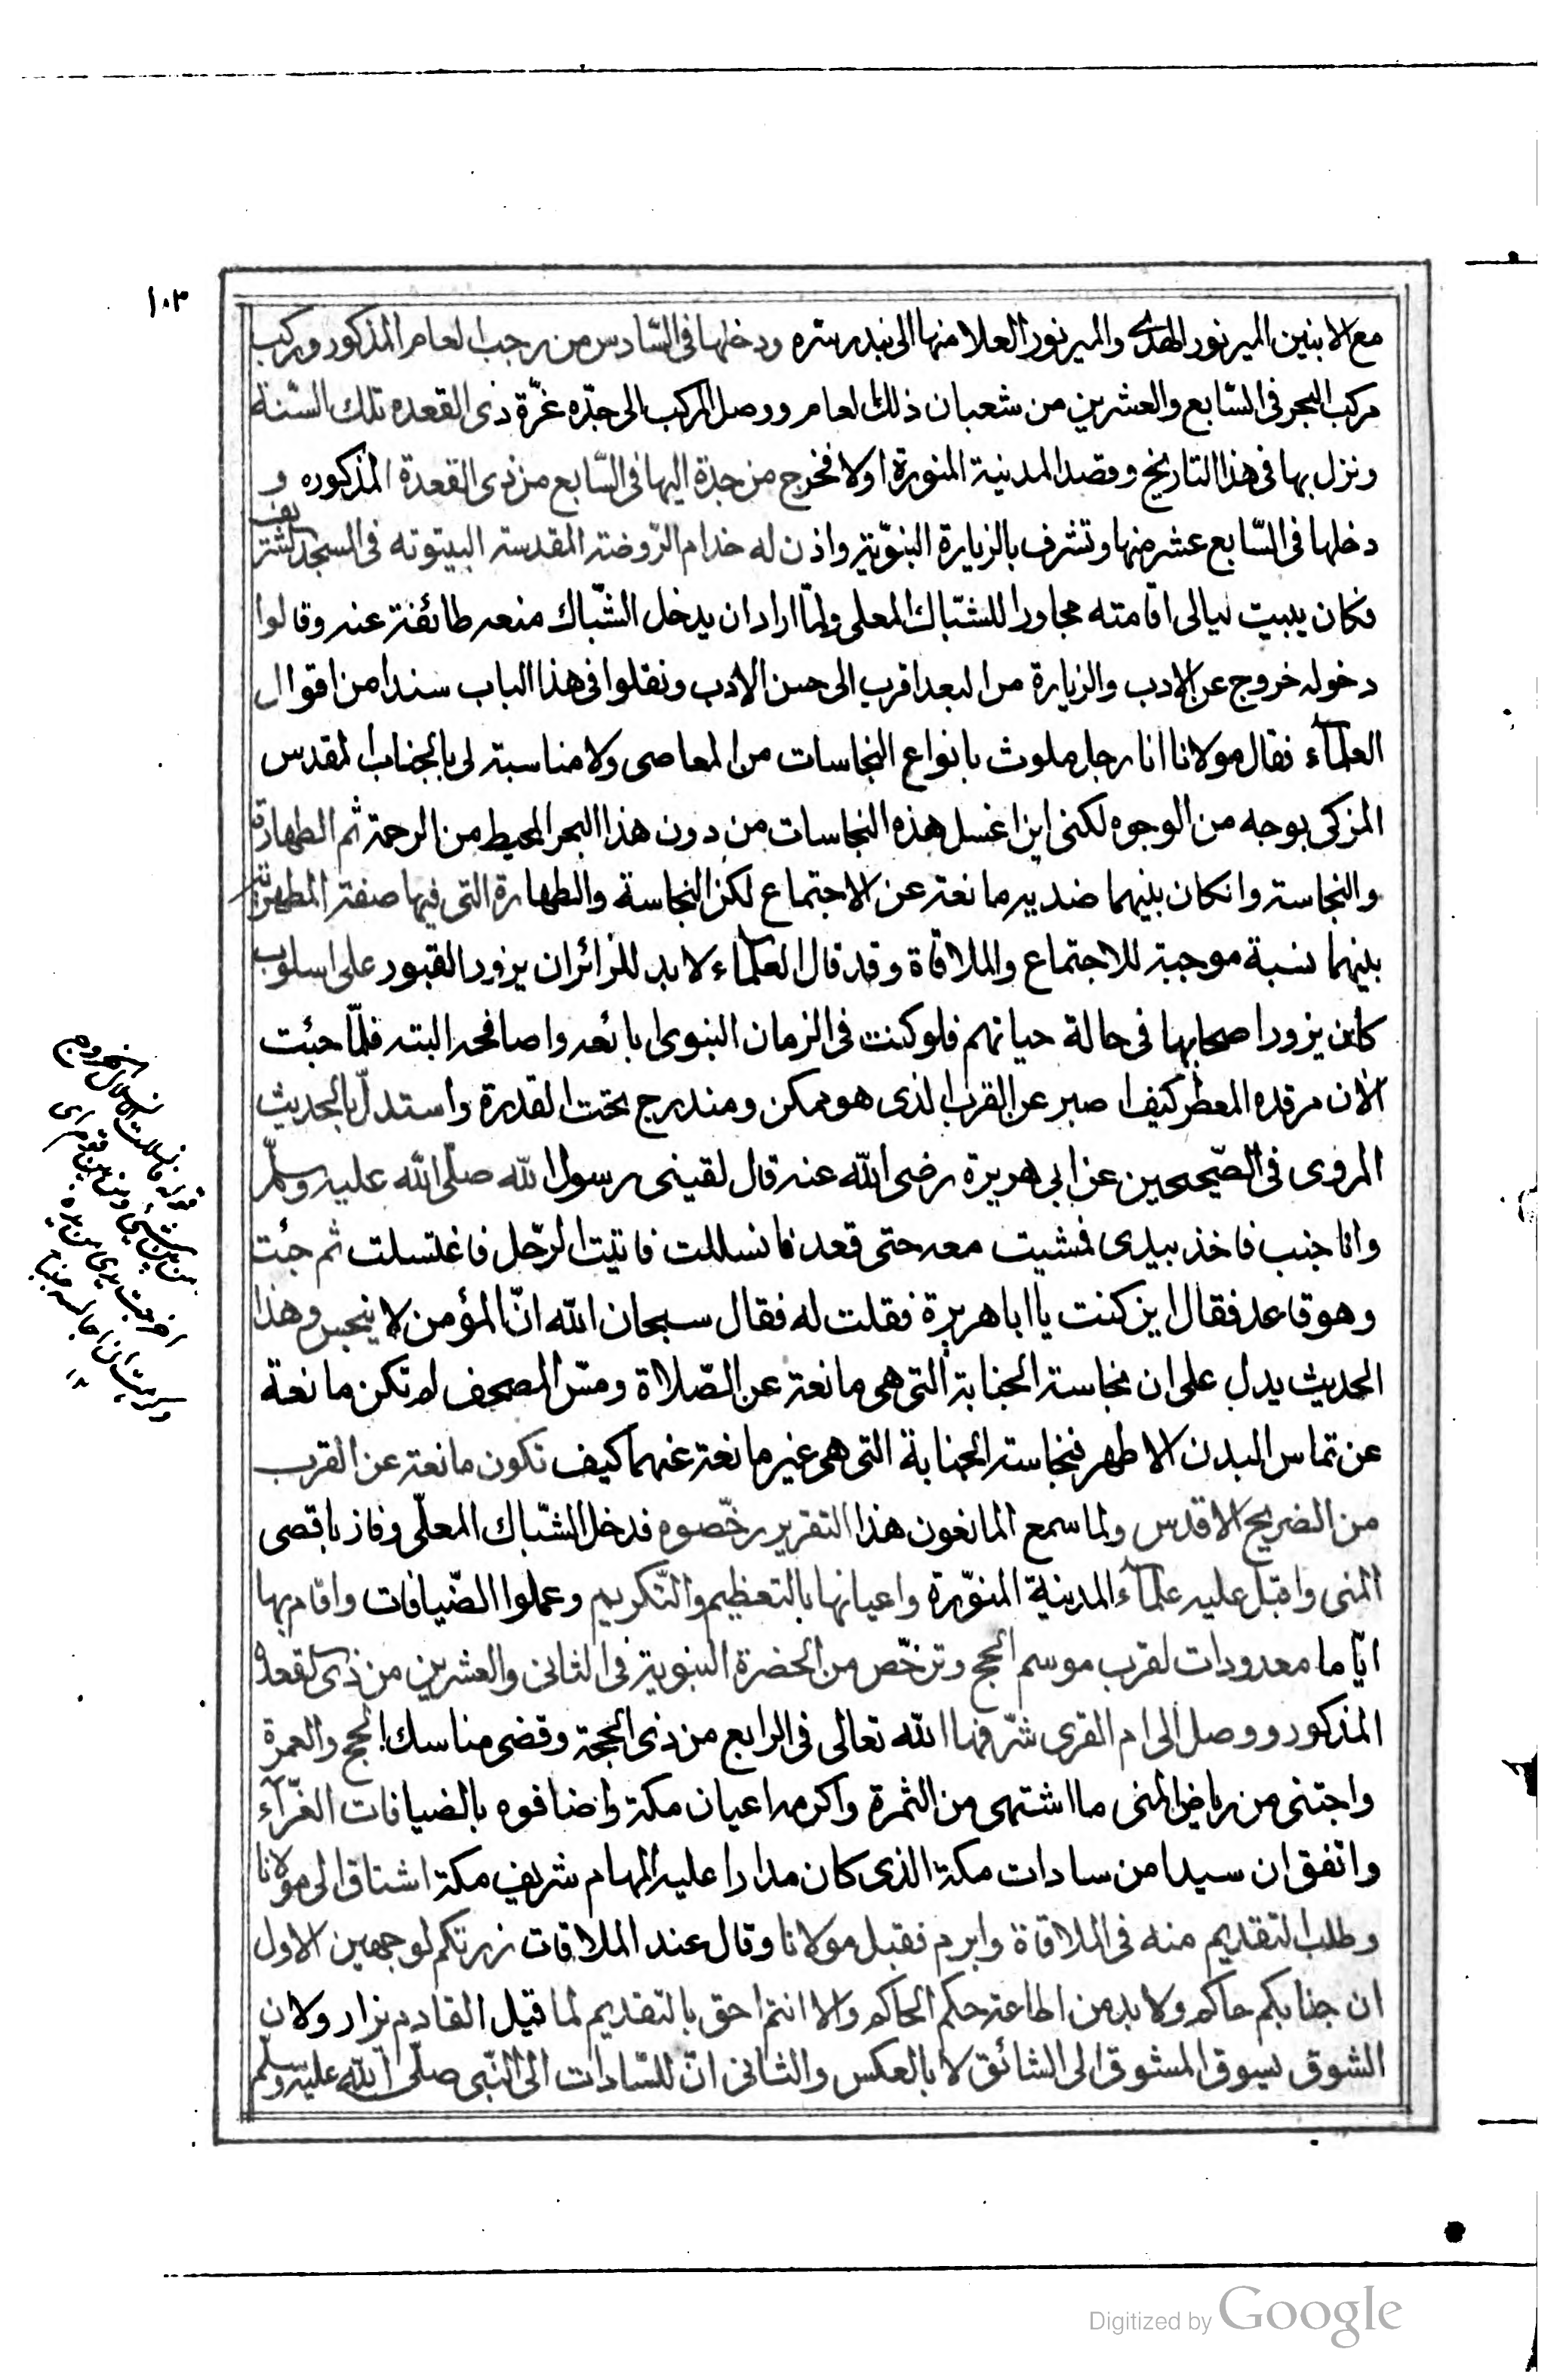 ١٠٣
مع الابنين المير نور الهدى والمير نور العلا منها الى بندر سرة ودخلها فى السّادس من رجب العام المذكور وركب
مركب البحر فى السّابع والعشرين من شعبان ذلك العام ووصل المركب الى جدّه غرّة ذى القعده تلك السّنة
ونزل بها فى هذا التاريخ وقصد المدنية المنورة اولا فخرج من جدة اليها فى السّابع من ذى القعدة المذكوره و
دخلها فى السّابع عشر منها وتشرف بالزيارة النبوّية واذن له خدام الرّوضة المقدسة البيتوته فى المسجد الشريف
فكان يبيت ليالى اقامته مجاورا للشبّاك المعلى ولمّا اراد ان يدخل الشّباك منعه طائفة عنه وقالوا
دخوله خروج عن الادب والزيارة من البعد اقرب الى حسن الادب ونقلوا فى هذا الباب سندا من اقوال
العلمآء فقال مولانا انا رجل ملوث بانواع النجاسات من المعاصى ولا مناسبة لى بالجناب المقدس
المزكى بوجه من الوجوه لكنى اين اغسل هذه النجاسات من دون هذا البحر المحيط من الرحمة ثم الطهارة
والنجاسة وانكان بينهما ضديه مانعة عن الاجتماع لكن النجاسة والطهارة التى فيها صفة المطهرية
بينهما نسبة موجبة للاجتماع والملاقاة وقد قال العلماء لا بد للزائر ان يزور القبور على اسلوب
كان يزور اصحابها فى حالة حياتهم فلو كنت فى الزمان النبوى ابائعه واصافحه البته فلمّا جئت
الآن مرقده المعطر كيف اصبر عن القرب الذى هو ممكن ومندرج تحت القدرة واستدلّ بالحديث
المروى فى الصّحيحين عن ابى هريرة رضى الله عنه قال لقينى رسول الله صلّى الله عليه وسلّم
وانا جنب فاخذ بيدى فمشيت معه حتى قعد فانسللت فاتيت الرّحل فاغتسلت ثم جئت
وهو قاعد فقال اين كنت يا اباهريرة فقلت له فقال سبحان الله انّ المؤمن لا ينجس وهذا
الحديث يدل على ان نجاسة الجنابة التى هى مانعة عن الصّلاة ومسّ المصحف لم تكن مانعة
عن تماس البدن الاطهر فنجاسة الجنابة التى هى غير مانعة عنهما كيف تكون مانعة عن القرب
من الضريح الاقدس ولما سمع المانعون هذا التقرير رخّصوه فدخل الشبّاك المعلّى وفاز باقصى
المنى واقبل عليه علمآء المدينة المنوّرة واعيانها بالتعظيم والتّكريم وعملوا الضّيافات واقام بها
ايّاما معدودات لقرب موسم الحج وترخّص من الحضرة النبوية فى الثانى والعشرين من ذى القعده
المذكور ووصل الى ام القرى شرّفها الله تعالى فى الرابع من ذى الحجة وقضى مناسك الحج والعمرة
واجتنى من رياض المنى ما اشتهى من الثمرة واكرمه اعيان مكة واضافوه بالضيافات الغرّآء
واتفق ان سيدا من سادات مكة الذى كان مدارا عليه المهام شريف مكة اشتاق الى مولانا
وطلب التقديم منه فى الملاقاة وابرم فقبل مولانا وقال عند الملاقات زرتكم لوجهين الاول
ان جنابكم حاكم ولا بد من اطاعة حكم الحاكم والا انتم احق بالتقديم لما قيل القادم يزار ولان
الشوق يسوق المشوق الى الشائق لا بالعكس والثانى انّ للسّادات الى النّبى صلّى الله عليه وسلّم
قوله فانسللت الانسلال الخروج
Digitized by Google